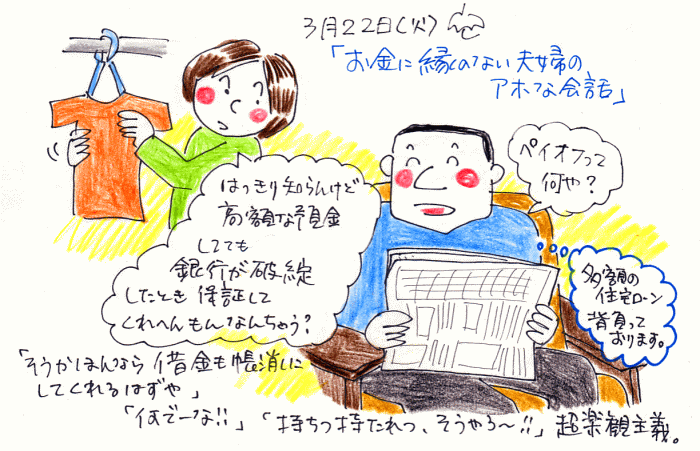 3月22日(火)
「お金に縁のない夫婦の
アホな会話」
ペイオフって
何や？
はっきり知らんけど
高額な預金
してても
銀行が破綻
したとき保証して
くれへんもんなんちゃう？
多額の
住宅ローン
背負って
おります。
「そうかほんなら借金も帳消しに
してくれるはずや」
「何でーな!!」「持ちつ持たれつ、そうやろ〜!!」超楽観主義。